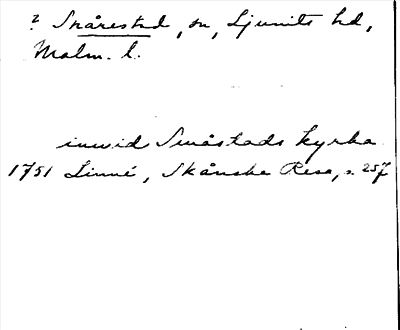 ? Snårestad, sn, Ljunits hd,
Malm. l.
inwid Snåstads kyrka
1751 Linné, Skånska Resa, s. 257